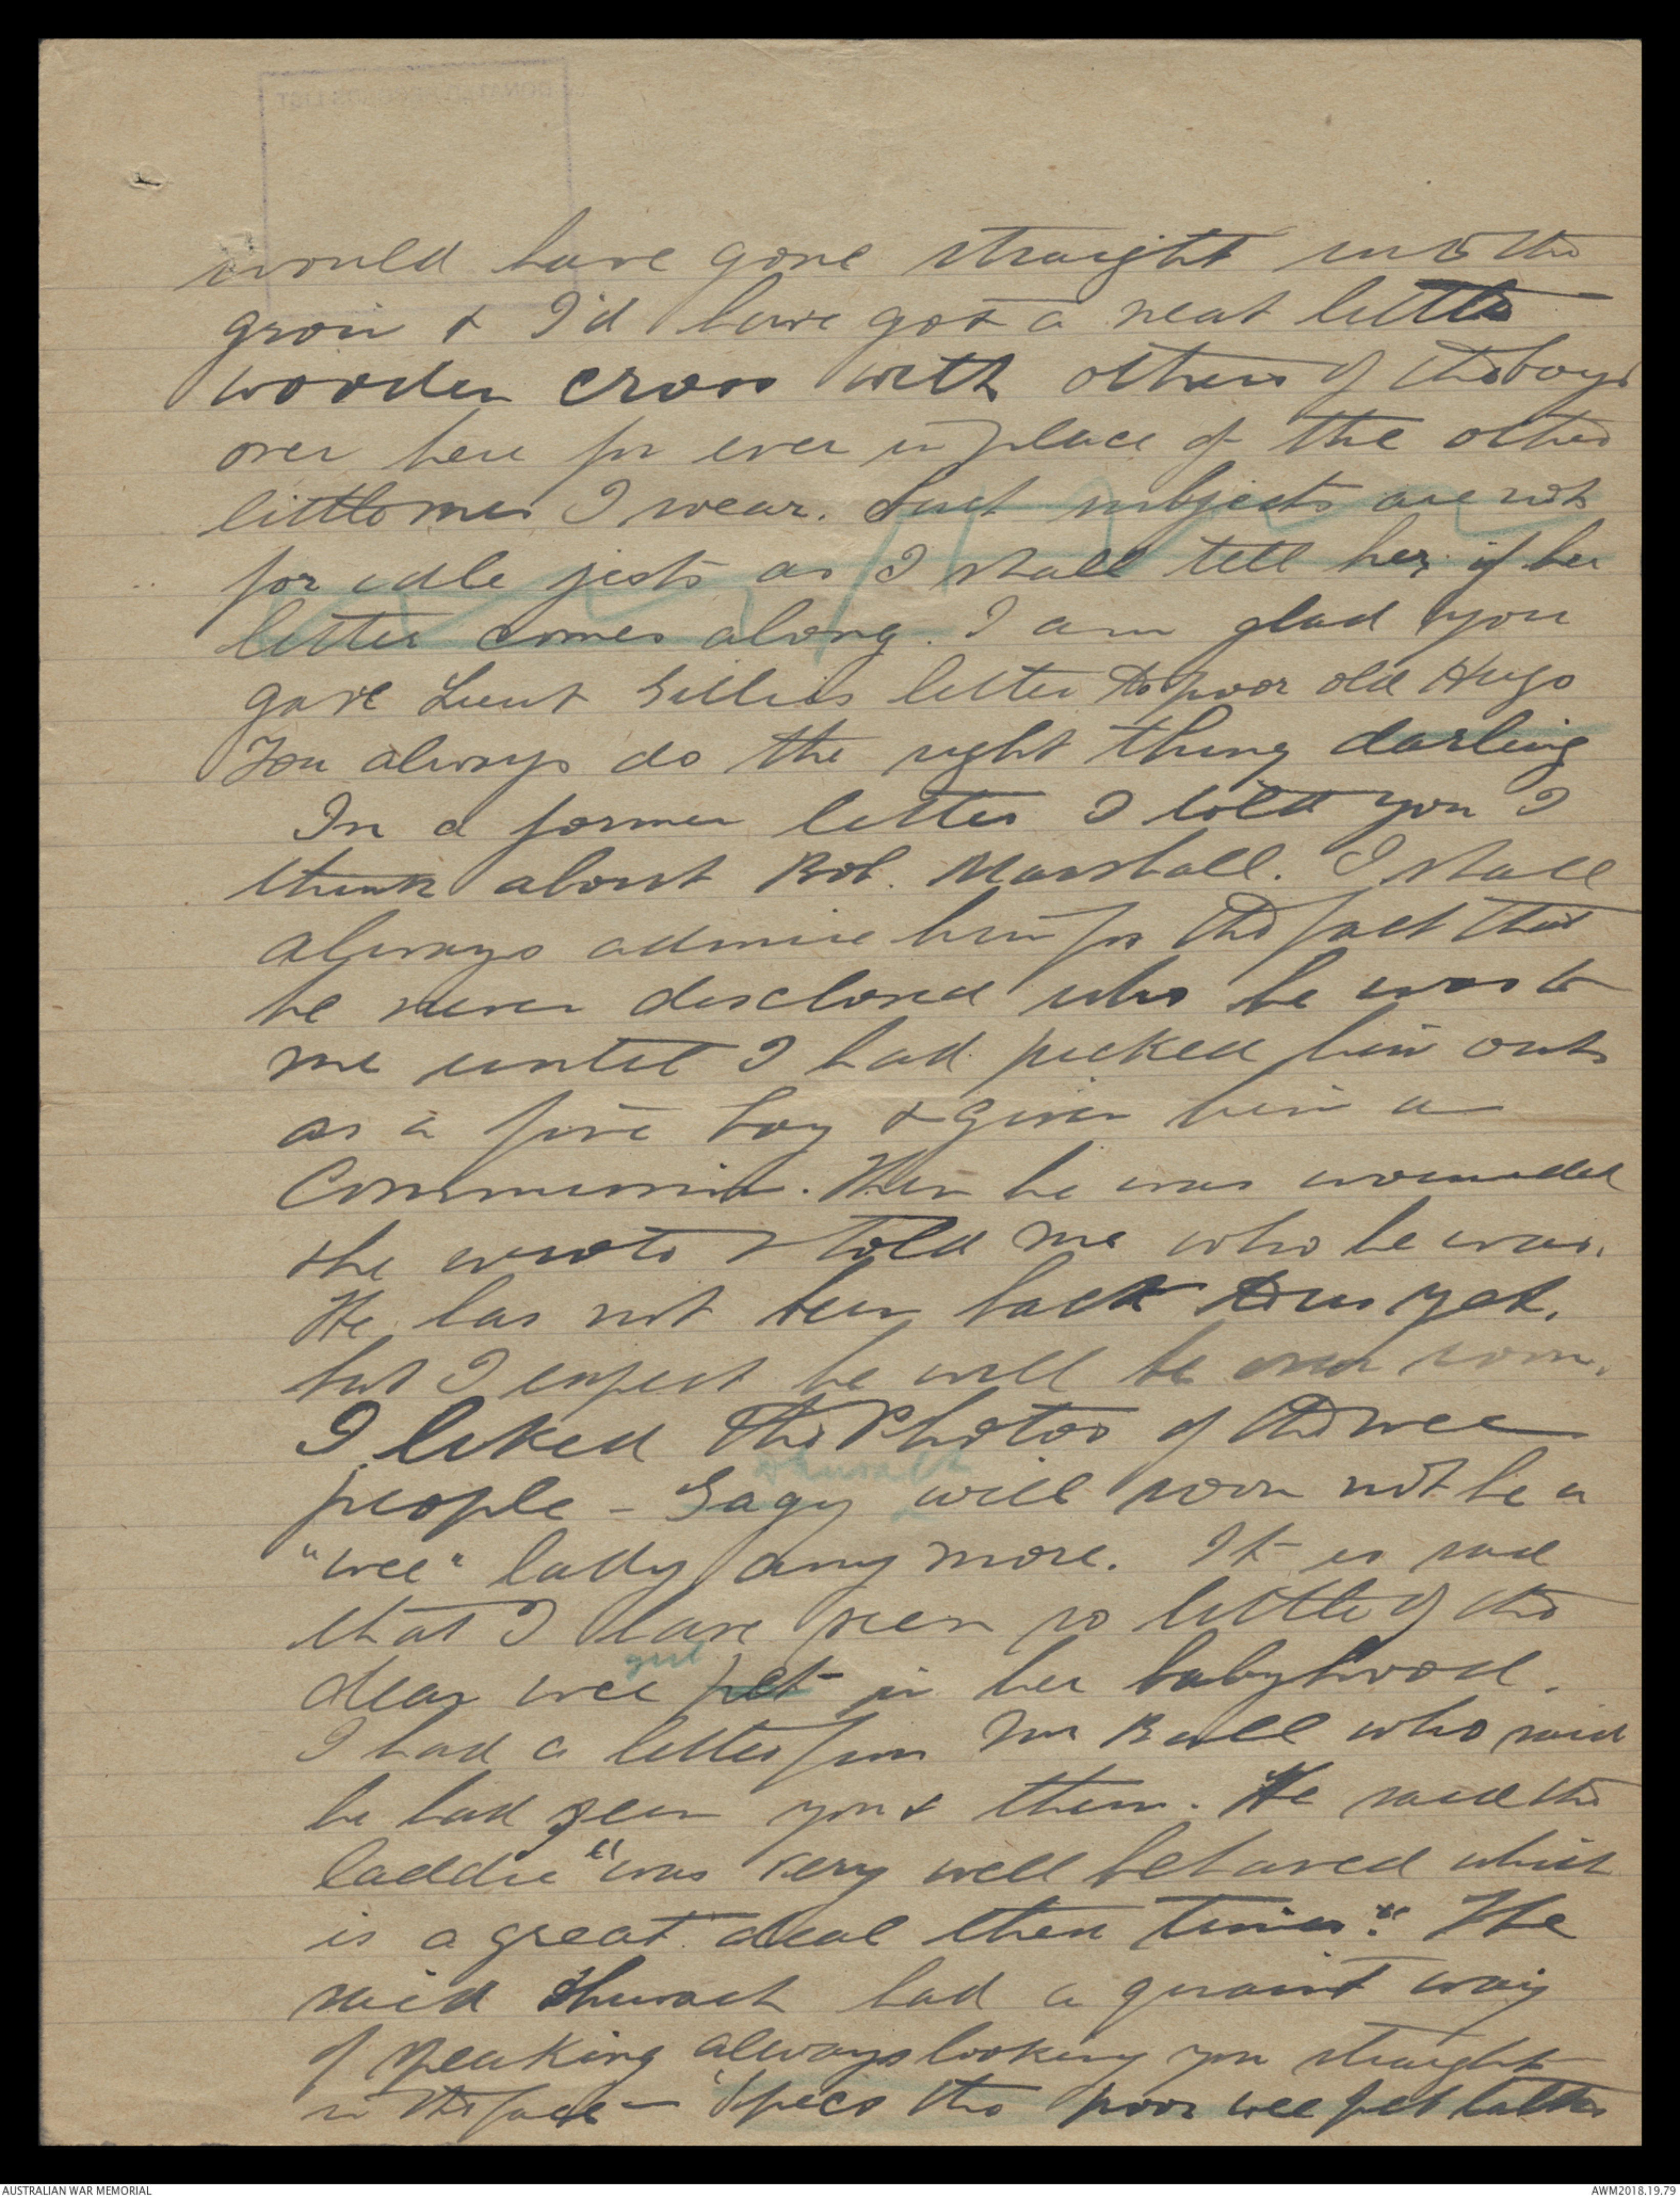 would have gone straight into the
groin & I'd have got a neat little
wooden cross with others of the boys
over here for ever in place of the other
little ones I wear. Such subjects are not
for idle jests as I shall tell her if her
letter comes along. I am glad you
gave Lieut Gillies letter to poor old Hugo
You always do the right thing darling
In a former letter I told you I
think about Bob. Marshall. I shall
always admire him for the fact that
he never disclosed who he was to
me until I had picked him out
as a fine boy & given him a
Commission. When he was wounded
she wrote & told me who he was.
He has not been back to us yet,
but I expect he will be over soon.
I liked the Photos of the wee
Shurack
people - Gagy will soon not be a
"wee" lady any more. It is sad
that I have seen so little of the
girl
dear wee pet in her babyhood.
I had a letter from Mr Ball who said
he had seen you & them. He said the
laddie "was very well behaved which
is a great deal these times". He
said Shurack had a quaint way
of speaking always looking you straight
in the face - 'Spects the poor wee pet
AUSTRALIAN WAR MEMORIAL
AWM2018.19.79